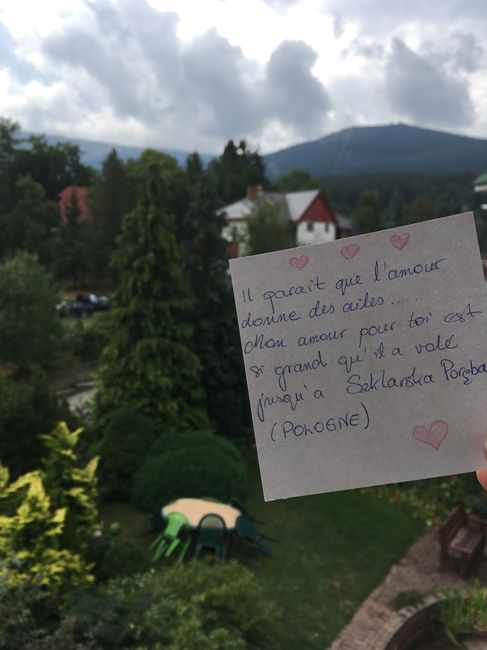 Il parait que l'amour
donne des ailes....
Mon amour pour toi est
si grand qu'il a volé
jusqu'a Szklarska Poręba
(POLOGNE)